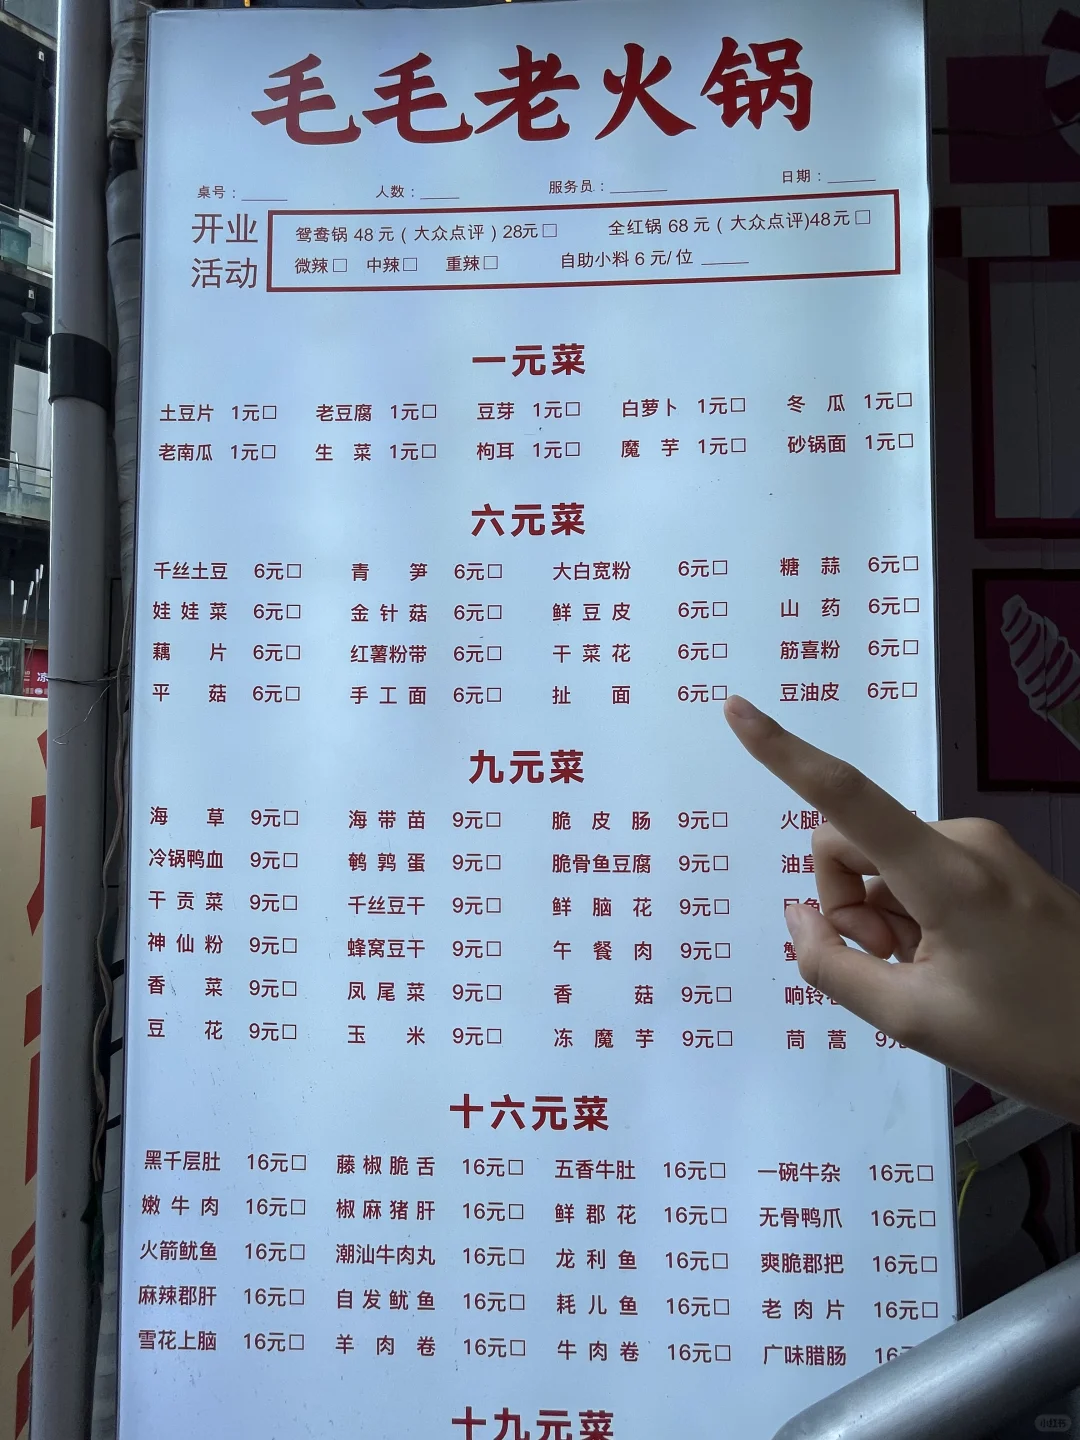 毛毛老火锅
桌号：_____ 人数：____ 服务员：______ 日期：_____
开业活动
鸳鸯锅 48 元（大众点评）28元□ 全红锅 68 元（大众点评)48元□
微辣□ 中辣□ 重辣□ 自助小料 6 元/ 位 _____
一元菜
土豆片 1元□ 老豆腐 1元□ 豆芽 1元□ 白萝卜 1元□ 冬瓜 1元□
老南瓜 1元□ 生菜 1元□ 枸耳 1元□ 魔芋 1元□ 砂锅面 1元□
六元菜
千丝土豆 6元□ 青笋 6元□ 大白宽粉 6元□ 糖蒜 6元□
娃娃菜 6元□ 金针菇 6元□ 鲜豆皮 6元□ 山药 6元□
藕片 6元□ 红薯粉带 6元□ 干菜花 6元□ 筋喜粉 6元□
平菇 6元□ 手工面 6元□ 扯面 6元□ 豆油皮 6元□
九元菜
海草 9元□ 海带苗 9元□ 脆皮肠 9元□ 火腿
冷锅鸭血 9元□ 鹌鹑蛋 9元□ 脆骨鱼豆腐 9元□ 油
干贡菜 9元□ 千丝豆干 9元□ 鲜脑花 9元□
神仙粉 9元□ 蜂窝豆干 9元□ 午餐肉 9元□ 蟹
香菜 9元□ 凤尾菜 9元□ 香菇 9元□ 响铃
豆花 9元□ 玉米 9元□ 冻魔芋 9元□ 茼蒿 9元
十六元菜
黑千层肚 16元□ 藤椒脆舌 16元□ 五香牛肚 16元□ 一碗牛杂 16元□
嫩牛肉 16元□ 椒麻猪肝 16元□ 鲜郡花 16元□ 无骨鸭爪 16元□
火箭鱿鱼 16元□ 潮汕牛肉丸 16元□ 龙利鱼 16元□ 爽脆郡把 16元□
麻辣郡肝 16元□ 自发鱿鱼 16元□ 耗儿鱼 16元□ 老肉片 16元□
雪花上脑 16元□ 羊肉卷 16元□ 牛肉卷 16元□ 广味腊肠 16
十九元菜
小红书